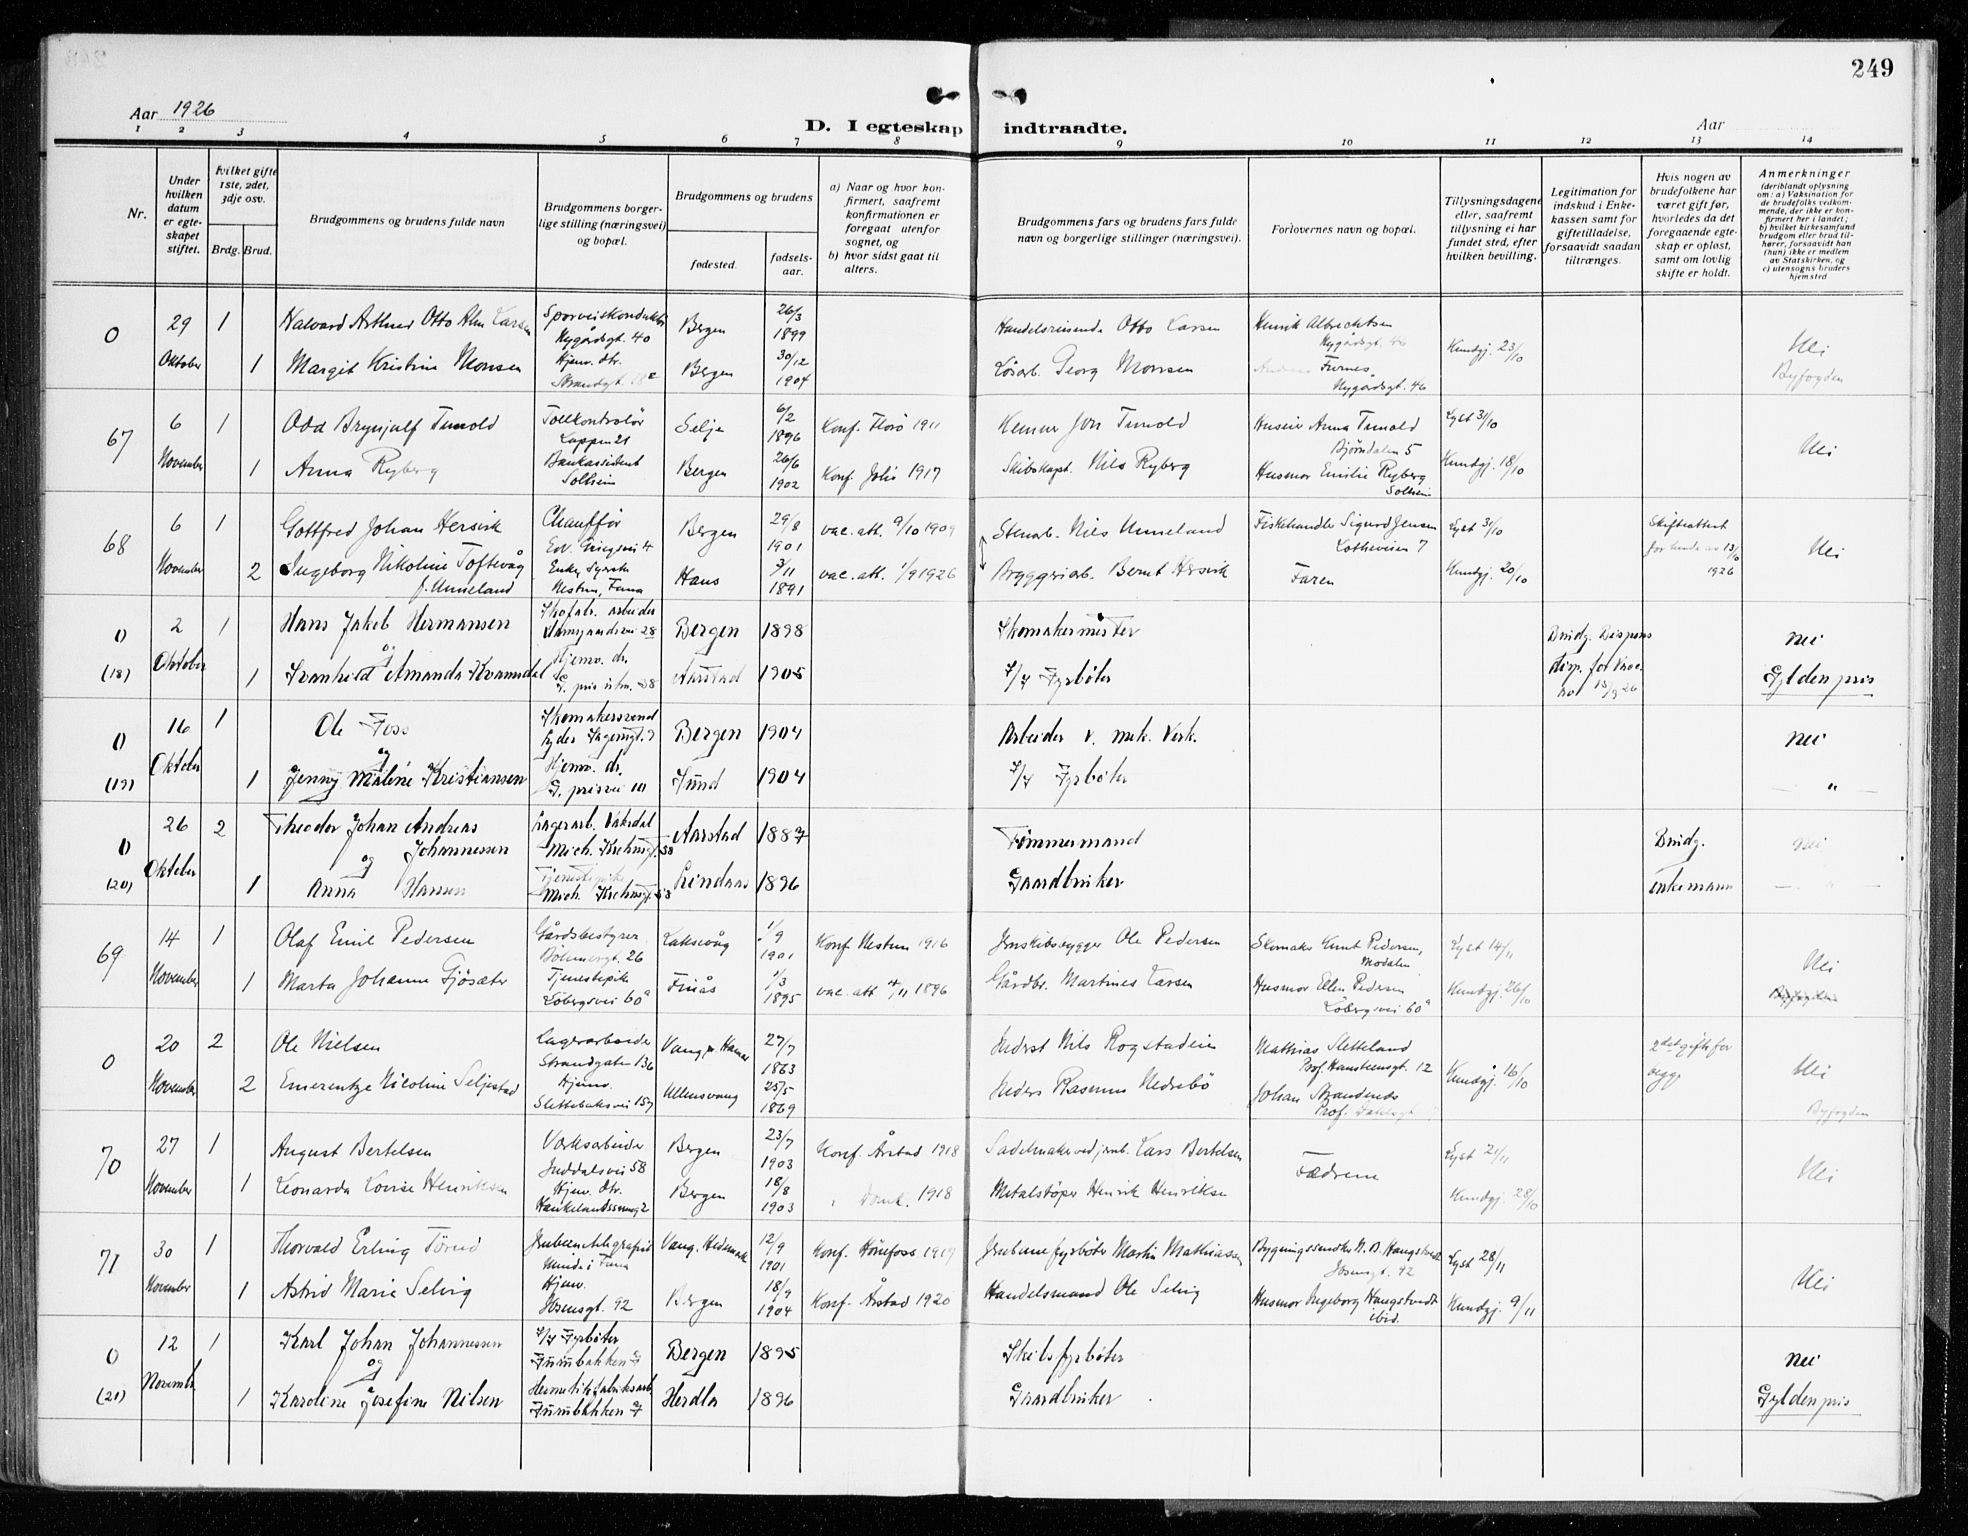 249
Aar 1926
D. I egteskap indtraadte.
Aar
1 2 3 4 5 6 7 8 9 10 11 12 13 14
Nr.
Under hvilken datum er egteskapet stiftet.
Hvilket gifte 1ste, 2det, 3dje osv.
Brdg. Brud.
Brudgommens og brudens fulde navn
Brudgommens borgerlige stilling (næringsvei) og bopæl.
Brudgommens og brudens
fødested.
fødselsaar.
a) Naar og hvor konfirmert, saafremt konfirmationen er foregaat utenfor sognet, og
b) hvor sidst gaat til alters.
Brudgommens fars og brudens fars fulde navn og borgerlige stillinger (næringsvei).
Forlovernes navn og bopæl.
Tillysningsdagene eller, saafremt tillysning ei har fundet sted, efter hvilken bevilling.
Legitimation for indskud i Enkekassen samt for giftetilladelse, forsaavidt saadan tiltrænges.
Hvis nogen av brudefolkene har været gift før, hvorledes da det foregaaende egteskap er opløst, samt om lovlig skifte er holdt.
Anmerkninger
(deriblandt oplysning om: a) Vaksination for de brudefolks vedkommende, der ikke er konfirmert her i landet; b) hvilket kirkesamfund brudgom eller brud tilhører, forsaavidt han (hun) ikke er medlem av Statskirken, og c) utensogns bruders hjemsted
0 29 1 Halvard Arthur Otto Alm Larsen Sporveiskonduktør Nygårdsgt. 40 Bergen 26/3 1899 Handelsreisende Otto Larsen Henrik Albrechtsen Nygårdsgt. 46 Kundgj. 23/10 Nei
Oktober 1 Margit Kristine Monsen Hjem. dtr. Strandgt. Bergen 30/12 1904 Løsarb. Georg Monsen Furnes Nygårdsgt. 46 Byfogden
67 6 1 Odd Brynjulf Timold Tollkontrolør Lappen 21 Selje 6/2 1896 Konf. Florø 1911 Kemner Jon Timold Husier Anna Timold Bjørndalen 5 Lyst 31/10 Nei
November 1 Anna Ryberg Bankassistent Solheim Bergen 26/6 1902 Konf. Johs 1917 Skibskapt. Nils Ryberg Husmor Emilie Ryberg Solheim Kundgj. 18/10
68 6 1 Gottfred Johan Hersvik Chauffør Edv. Griegsvei 4 Bergen 29/8 1901 vac. att. 9/10 1909 Stenarb. Nils Unneland Fiskehandler Sigurd Jensen Lotheveien 7 Lyst 31/10 Skifteattest for hende av 13/10 1926 Nei
November 2 Ingeborg Nikoline Toftevåg f. Unneland Enke, Syerske Nestun, Fana Haus 3/11 1891 vac. att. 1/9 1926 Bryggeriarb. Bernt Hersvik Faren Kundgj. 20/10
0 2 1 Hans Jakob Hermansen Skofabr. arbeider Bergen 1898 Skomakermester Brudg. Dispens nei
(18) Oktober og 1 Svanhild Amanda Kvamsdal Hjemv. dr. Aarstad 1905 F/F Fyrbøter disp. for 15/9 26 Gyldenpris
0 16 1 Ole Foss Skomakersvend Lyder Sagensgt. 9 Bergen 1904 Arbeider v. mek. Verk. nei
(19) Oktober og 1 Jenny Maline Kristiansen Hjemv. dr. G. prisvei 10 Sund 1904 F/F Fyrbøter "
0 26 2 Theodor Johan Andreas Johannessen Lagerarb. Vaksdal Mich. Krohnsgt. 58 Aarstad 1887 Tømmermand Brudg. nei
(20) Oktober og 1 Anna Hansen Tjenestepike Mich. Krohnsgt. 58 Lindaas 1896 Gaardbruker Enkemann "
69 14 1 Olaf Emil Pedersen Gårdsbestyrer Bøhmergt. 26 Laksevåg 1/9 1901 Konf Nestun 1916 Jernskibsbygger Ole Pedersen Skomaker Knut Pedersen, Modalen Lyst 14/11 Nei
November 1 Marta Johanne Gjøsæter Tjenestepike Løbergsvei 60a Finås 1/3 1895 vac. att 4/11 1896 Gårdbr. Martines Larsen Husmor Ellen Pedersen Løbergsvei 60a Kundgj. 26/10 Byfogden
0 20 2 Ole Nielsen Lagerarbeider Strandgaten 136 Vang, p. Hamar 27/7 1863 Inderst Nils Rogstadeien Mathias Sletteland Prof. Hansteensgt. 12 Kundgj. 16/10 2det gifte for begge Nei
November 2 Emerentze Nicoline Seljestad Hjemv. Slettebaksvei 157 Ullensvang 25/5 1869 Inders Rasmus Nedrebø Johan Strandenes Prof. Dahlsgt. Byfogden
70 27 1 August Bertelsen Værksarbeider Inddalsvei 58 Bergen 23/7 1903 Konf. Årstad 1918 Sadelmaker ved jernb. Lars Bertelsen Fædrene Lyst 21/11 Nei
November 1 Leonarda Lovise Henriksen Hjem. dtr. Haukelandssmug 2 Bergen 18/8 1903 " Domk. 1918 Metalstøper Henrik Henriksen Kundgj. 28/10
71 30 1 Thorvald Erling Tørud Jernbanetelegrafist Minde i Fana Vang, Hedemark 12/9 1901 Konf. Hønefoss 1917 Jernbane fyrbøter Martin Mathiassen Bygningssnekker N. B. Haugstvedt Ibsensgt. 92 Lyst 28/11 Nei
November 1 Astrid Marie Selvig Hjem. Ibsensgt. 92 Bergen 18/9 1904 Konf. Årstad 1920 Handelsmand Ole Selvig Husmor Ingeborg Haugstvedt ibid. Kundgj. 9/11
0 12 1 Karl Johan Johannessen F/F Fyrbøter Furubakken 7 Bergen 1895 Skibsfyrbøter nei
(21) November og 1 Karoline Josefine Nilsen Hermetikfabriksarb Furubakken 7 Herdla 1896 Gaardbruker Gyldenpris